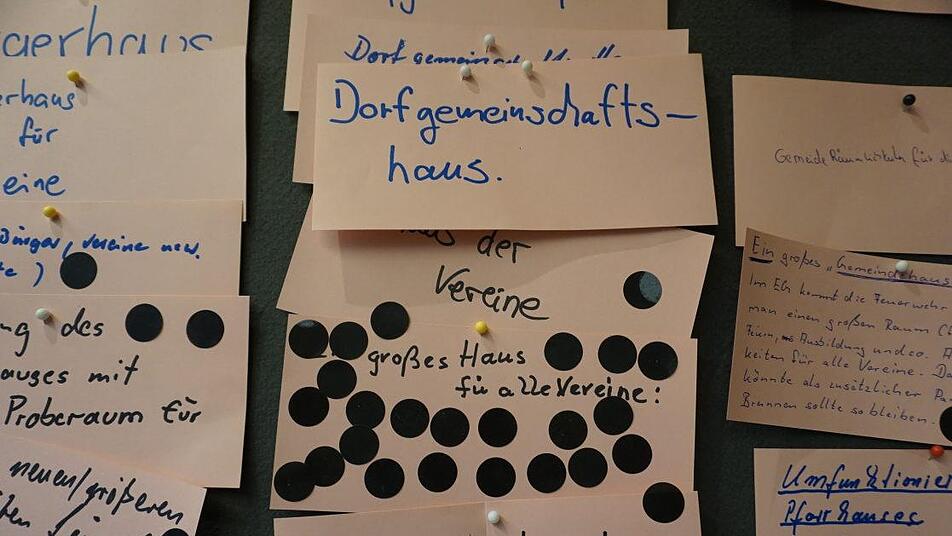 erhaus
für
eine
Bürger, Vereine usw.
ng des
auges mit
Proberaum für
neuen/größeren
Dorfgemeinschafts-
haus.
der
Vereine
großes Haus
für alle Vereine:
für
Ein großes "Gemeindehaus
Im EG kommt die Feuerwehr
man einen großen Raum
Ausbildung
keiten für alle Vereine.
könnte als zusätzlicher
Brunnen sollte so bleiben.
Umfunktionier
Pfarrhauses